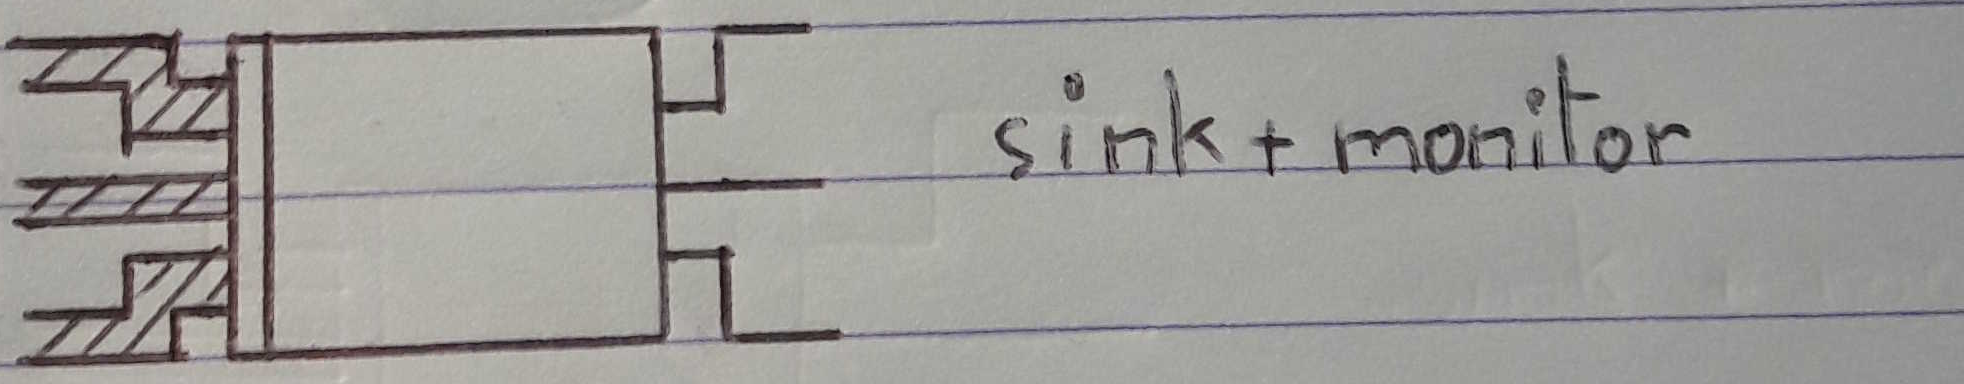 sink + monitor